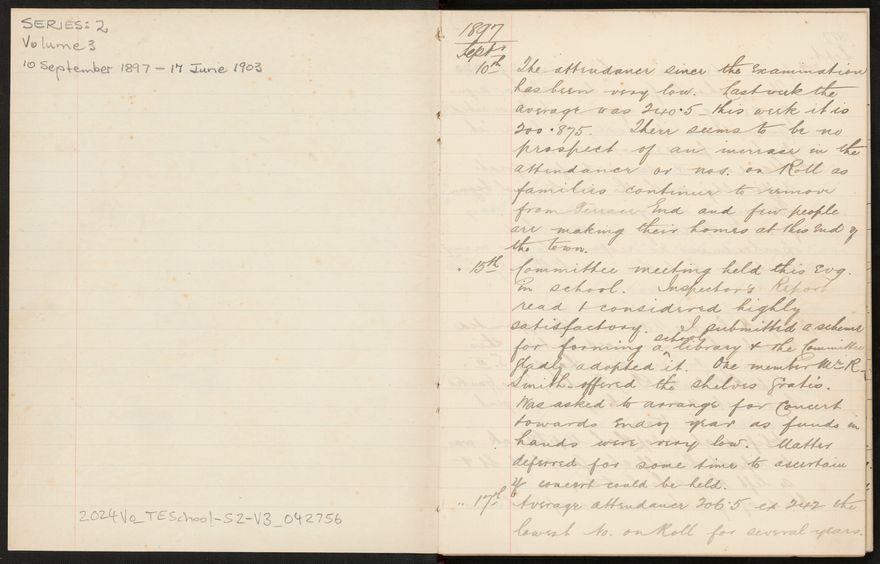 SERIES: 2
Volume 3
10 September 1897 – 17 June 1903
2024Va TESchool-S2-V3_042756
1897
Septr
10th The attendance since the Examination
has been very low. Last week the
average was 240.5 – this week it is
200.875. There seems to be no
prospect of an increase in the
attendance or nos. on Roll as
families continue to remove
from Terrace End and few people
are making their homes at this End of
the town.
" 15th Committee meeting held this Evg.
in school. Inspector's Report
read & considered highly
satisfactory. I submitted a scheme
for forming a school library & the Committee
gladly adopted it. One member Mr R.
Smith offered the shelves gratis.
Was asked to arrange for Concert
towards End of year as funds in
hands were very low. Matter
deferred for some time to ascertain
if concert could be held.
" 17th Average attendance 206.5 ex 242 the
lowest No. on Roll for several years.